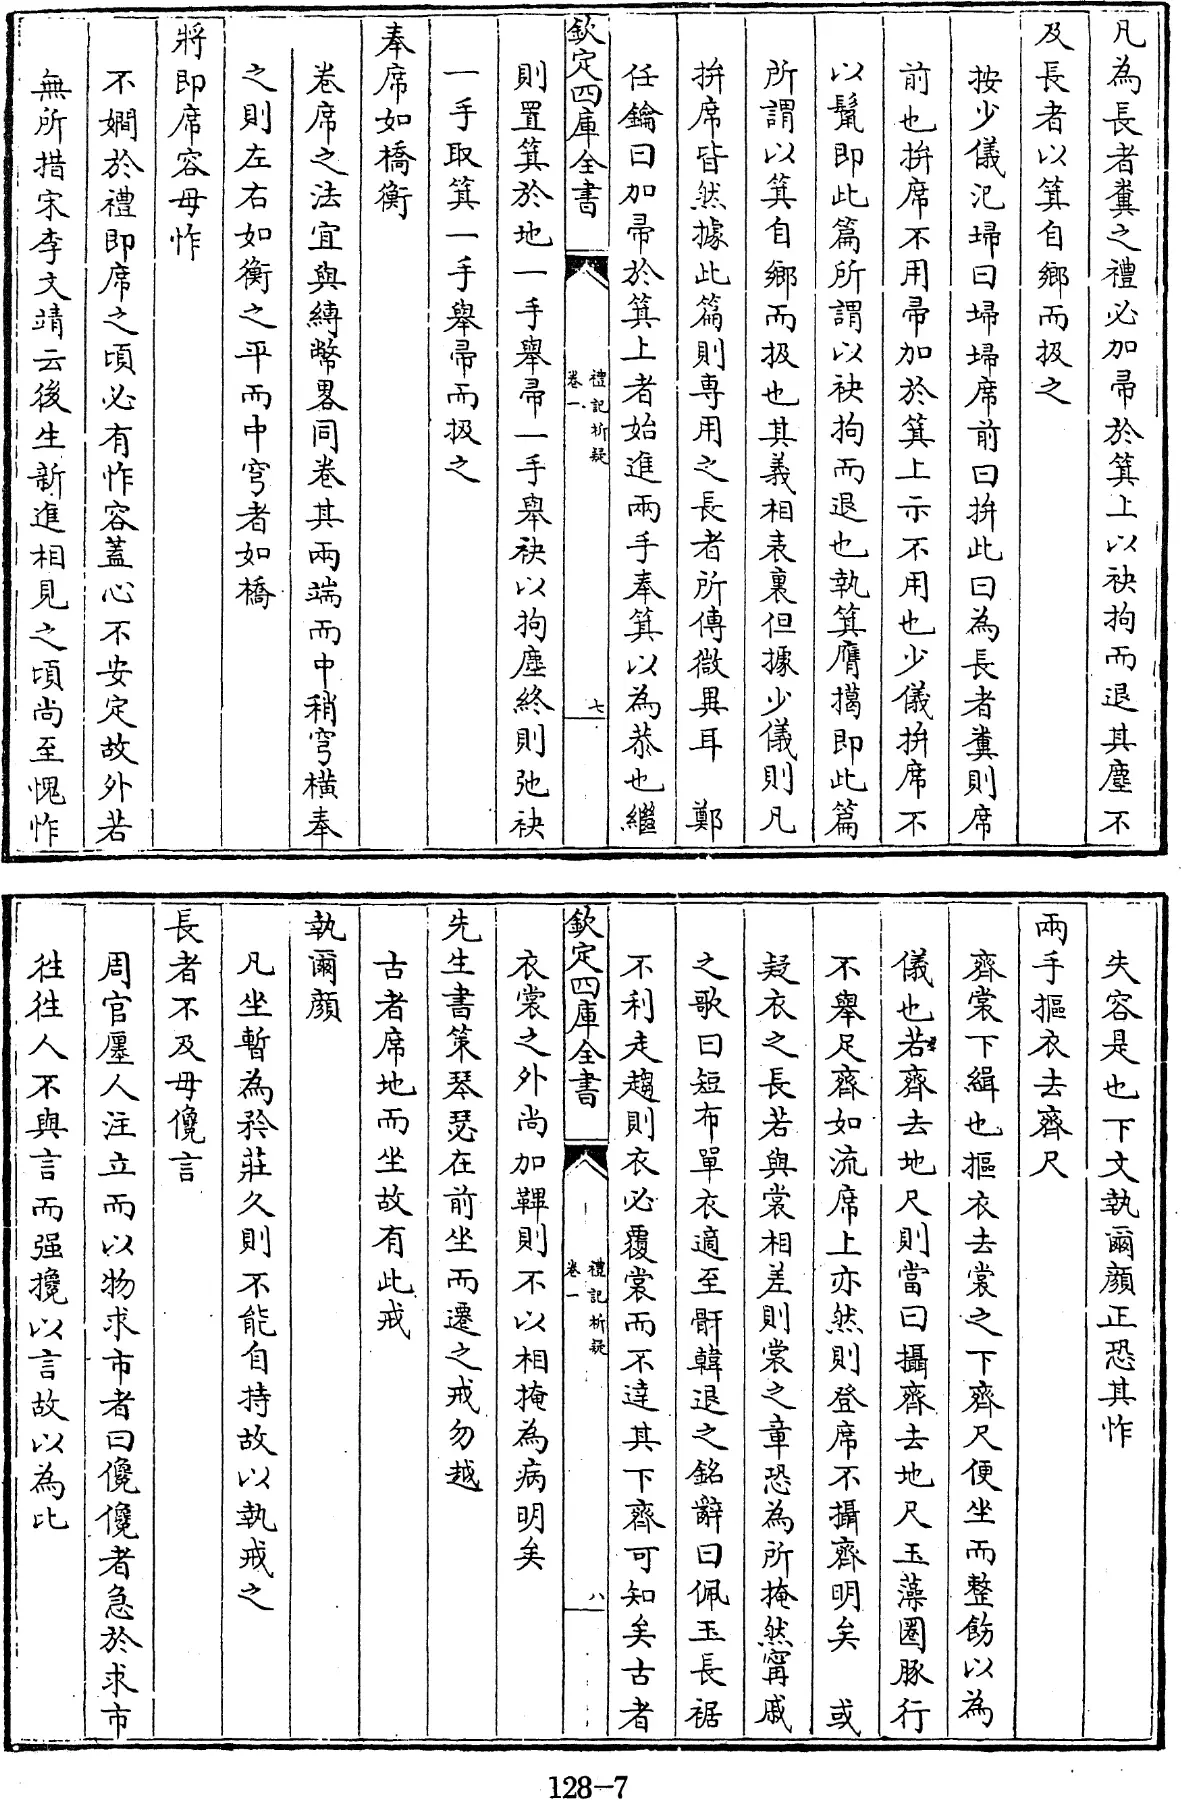 凡為長者糞之禮必加帚於箕上以袂拘而退其塵不
及長者以箕自鄉而扱之
按少儀氾埽曰埽埽席前曰拚此曰為長者糞則席
前也拚席不用帚加於箕上示不用也少儀拚席不
以鬛即此篇所謂以袂拘而退也執箕膺擖即此篇
所謂以箕自鄉而扱也其義相表裏但據少儀則凡
拚席皆然據此篇則專用之長者所傳微異耳　鄭
任鑰曰加帚於箕上者始進兩手奉箕以為恭也繼
欽定四庫全書
禮記析疑
卷一
七
則置箕於地一手舉帚一手舉袂以拘塵終則弛袂
一手取箕一手舉帚而扱之
奉席如橋衡
卷席之法宜與縳幣畧同卷其兩端而中稍穹橫奉
之則左右如衡之平而中穹者如橋
將即席容毋怍
不嫺於禮即席之頃必有怍容蓋心不安定故外若
無所措宋李文靖云後生新進相見之頃尚至愧怍
失容是也下文執爾顏正恐其怍
兩手摳衣去齊尺
齊裳下緝也摳衣去裳之下齊尺便坐而整飭以為
儀也若齊去地尺則當曰攝齊去地尺玉藻圈豚行
不舉足齊如流席上亦然則登席不攝齊明矣　或
疑衣之長若與裳相差則裳之章恐為所掩然甯戚
之歌曰短布單衣適至骭韓退之銘辭曰佩玉長裾
不利走趨則衣必覆裳而不達其下齊可知矣古者
欽定四庫全書
禮記析疑
卷一
八
衣裳之外尚加韠則不以相掩為病明矣
先生書策琴瑟在前坐而遷之戒勿越
古者席地而坐故有此戒
執爾顏
凡坐暫為矜莊久則不能自持故以執戒之
長者不及毋儳言
周官廛人注立而以物求市者曰儳儳者急於求市
往往人不與言而强攙以言故以為比
128-7